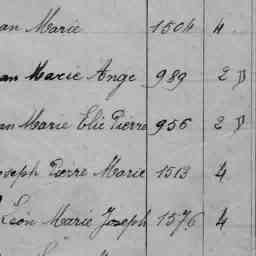 an Marie 1504 4
an Marie Ange 989 2 D
an Marie Elie Pierre 956 2 D
oseph Pierre Marie 1513 4
Léon Marie Joseph 1576 4